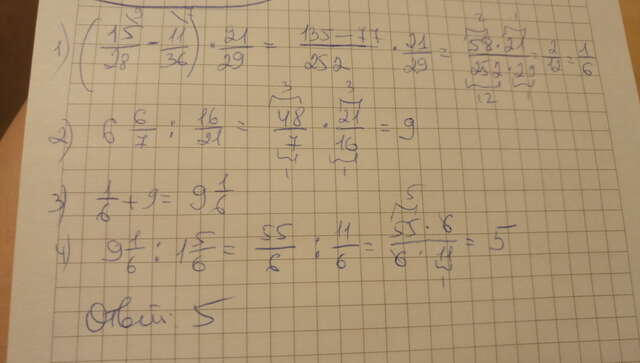 1) (15/28 - 11/36) · 21/29 = 135-77/252 · 21/29 = 58·21/252·29 = 2/12 = 1/6
2) 6 6/7 : 16/21 = 48/7 · 21/16 = 9
3) 1/6 + 9 = 9 1/6
4) 9 1/6 : 1 5/6 = 55/6 : 11/6 = 55·6/6·11 = 5
Ответ: 5